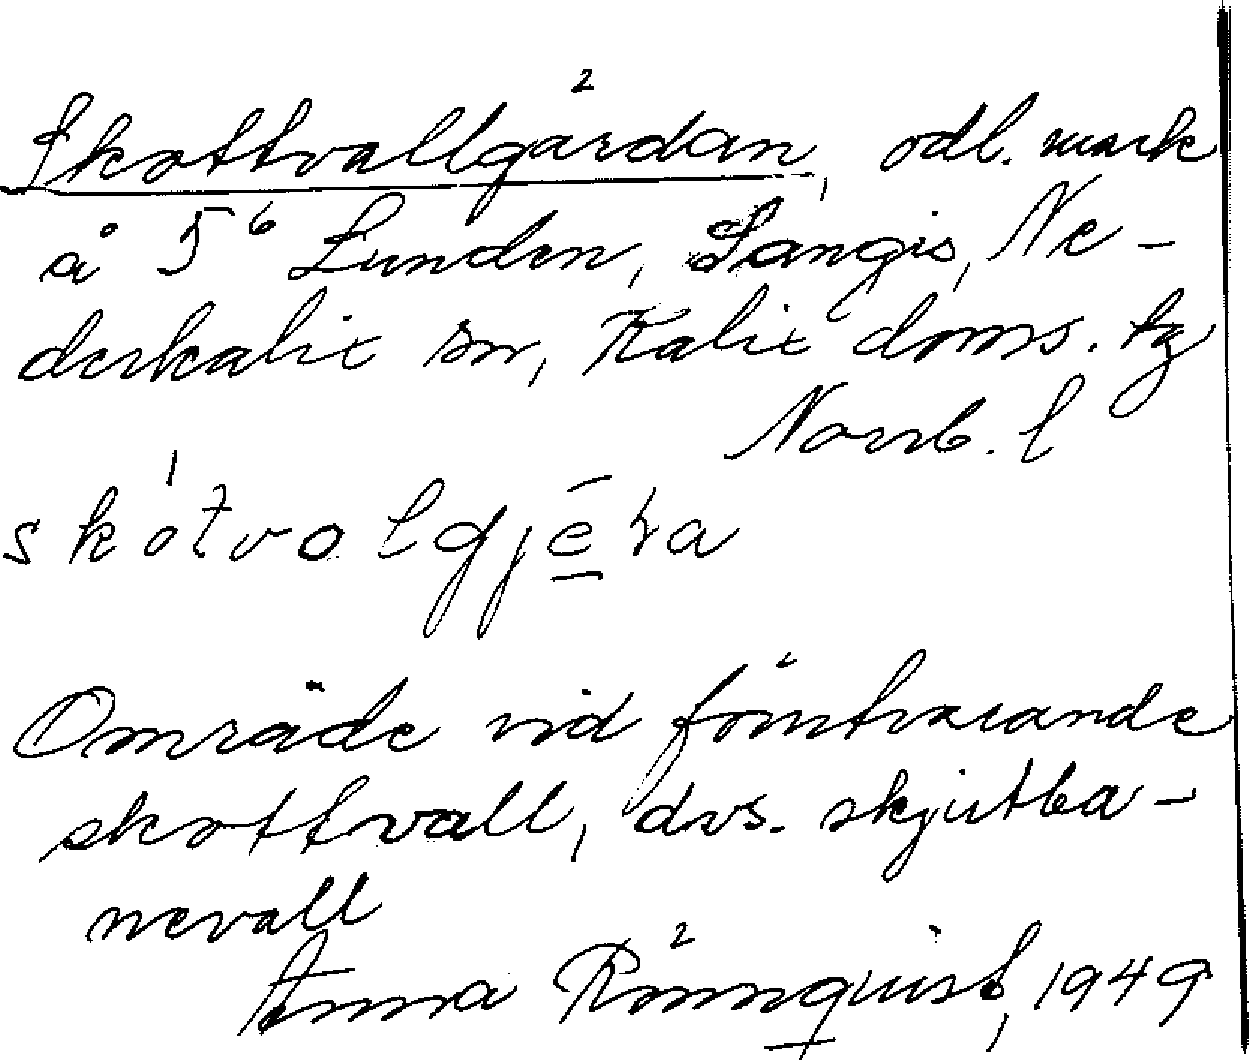 Skottvallgärdan, odl. mark
å 5⁶ Lunden, Sangis, Ne-
derkalix sn, Kalix doms. tg
Norrb. l
skótvolgjēra
Område vid förutvarande
skottvall, dvs. skjutba-
nevall
Anna Rönnquist, 1949